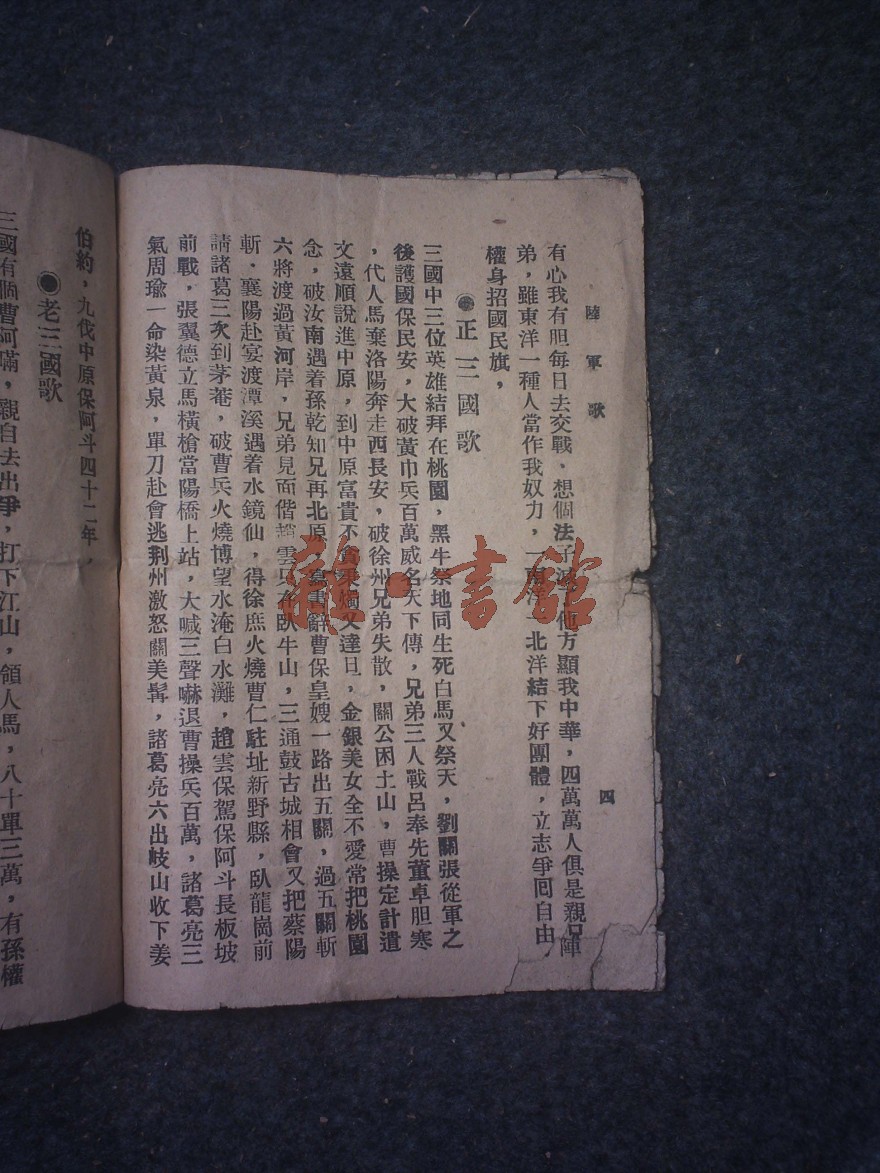 陸軍歌　四
有心我有胆每日去交戰、想個法子滅他方顯我中華，四萬萬人俱是親兄陣
弟，雖東洋一種人當作我奴力，一南洋一北洋結下好團體，立志爭囘自由，
權身招國民旗，
●正三國歌
三國中三位英雄結拜在桃園，黑牛祭地同生死白馬又祭天，劉關張從軍之
後護國保民安，大破黃巾兵百萬威名天下傳，兄弟三人戰呂奉先董卓胆寒
，代人馬棄洛陽奔走西長安，破徐州兄弟失散，關公困土山，曹操定計遣
文遠順說進中原，到中原富貴不貪秉燭又達旦，金銀美女全不愛常把桃園
念，破汝南遇着孫乾知兄再北原，寫書辭曹保皇嫂一路出五關，過五關斬
六將渡過黃河岸，兄弟見面偕趙雲只在臥牛山，三通鼓古城相會又把蔡陽
斬．襄陽赴宴渡潭溪遇着水鏡仙，得徐庶火燒曹仁駐址新野縣，臥龍崗前
請諸葛三次到茅菴，破曹兵火燒博望水淹白水灘，趙雲保駕保阿斗長板坡
前戰，張翼德立馬橫槍當陽橋上站，大喊三聲嚇退曹操兵百萬，諸葛亮三
氣周瑜一命染黃泉，單刀赴會逃荆州激怒關美髯，諸葛亮六出岐山收下姜
伯約，九伐中原保阿斗四十二年，
●老三國歌
三國有個曹阿瞞，親自去出爭，打下江山，領人馬，八十單三萬，有孫權
雜·書館